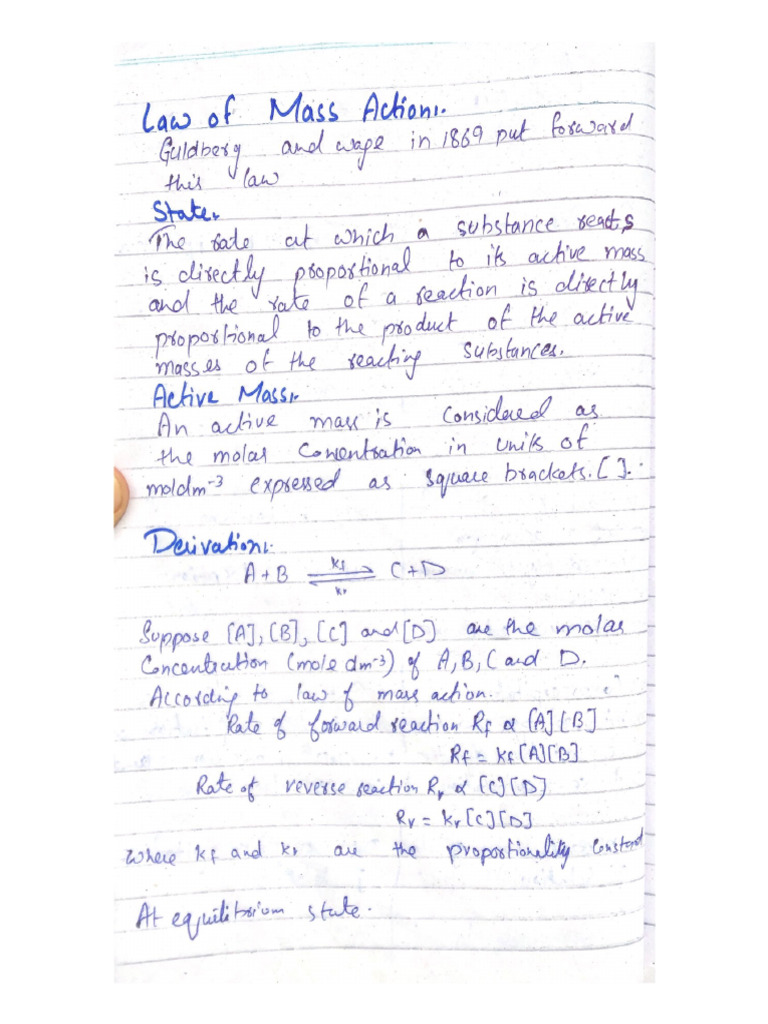 Law of Mass Action:.
Guldberg and wage in 1869 put forward
this law
State:.
The rate at which a substance reacts
is directly proportional to its active mass
and the rate of a reaction is directly
proportional to the product of the active
masses of the reacting substances.
Active Mass:.
An active mass is considered as
the molar concentration in units of
moldm⁻³ expressed as square brackets. [ ].
Derivation:.
A+B ⇌ C+D
kf
kr
Suppose [A], [B], [C] and [D] are the molar
Concentration (mole dm⁻³) of A, B, C and D.
According to law of mass action.
Rate of forward reaction Rf α [A][B]
Rf = kf[A][B]
Rate of reverse reaction Rr α [C][D]
Rr = kr[C][D]
where kf and kr are the proportionality constant
At equilibrium state.